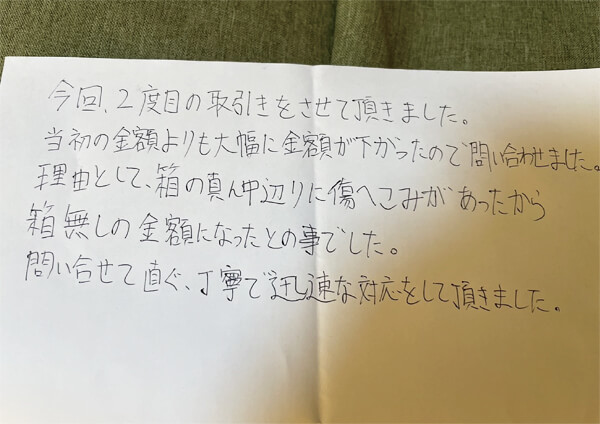 今回、2度目の取引きをさせて頂きました。
当初の金額よりも大幅に金額が下がったので問い合わせました。
理由として、箱の真ん中辺りに傷へこみがあったから
箱無しの金額になったとの事でした。
問い合せて直ぐ、丁寧で迅速な対応をして頂きました。